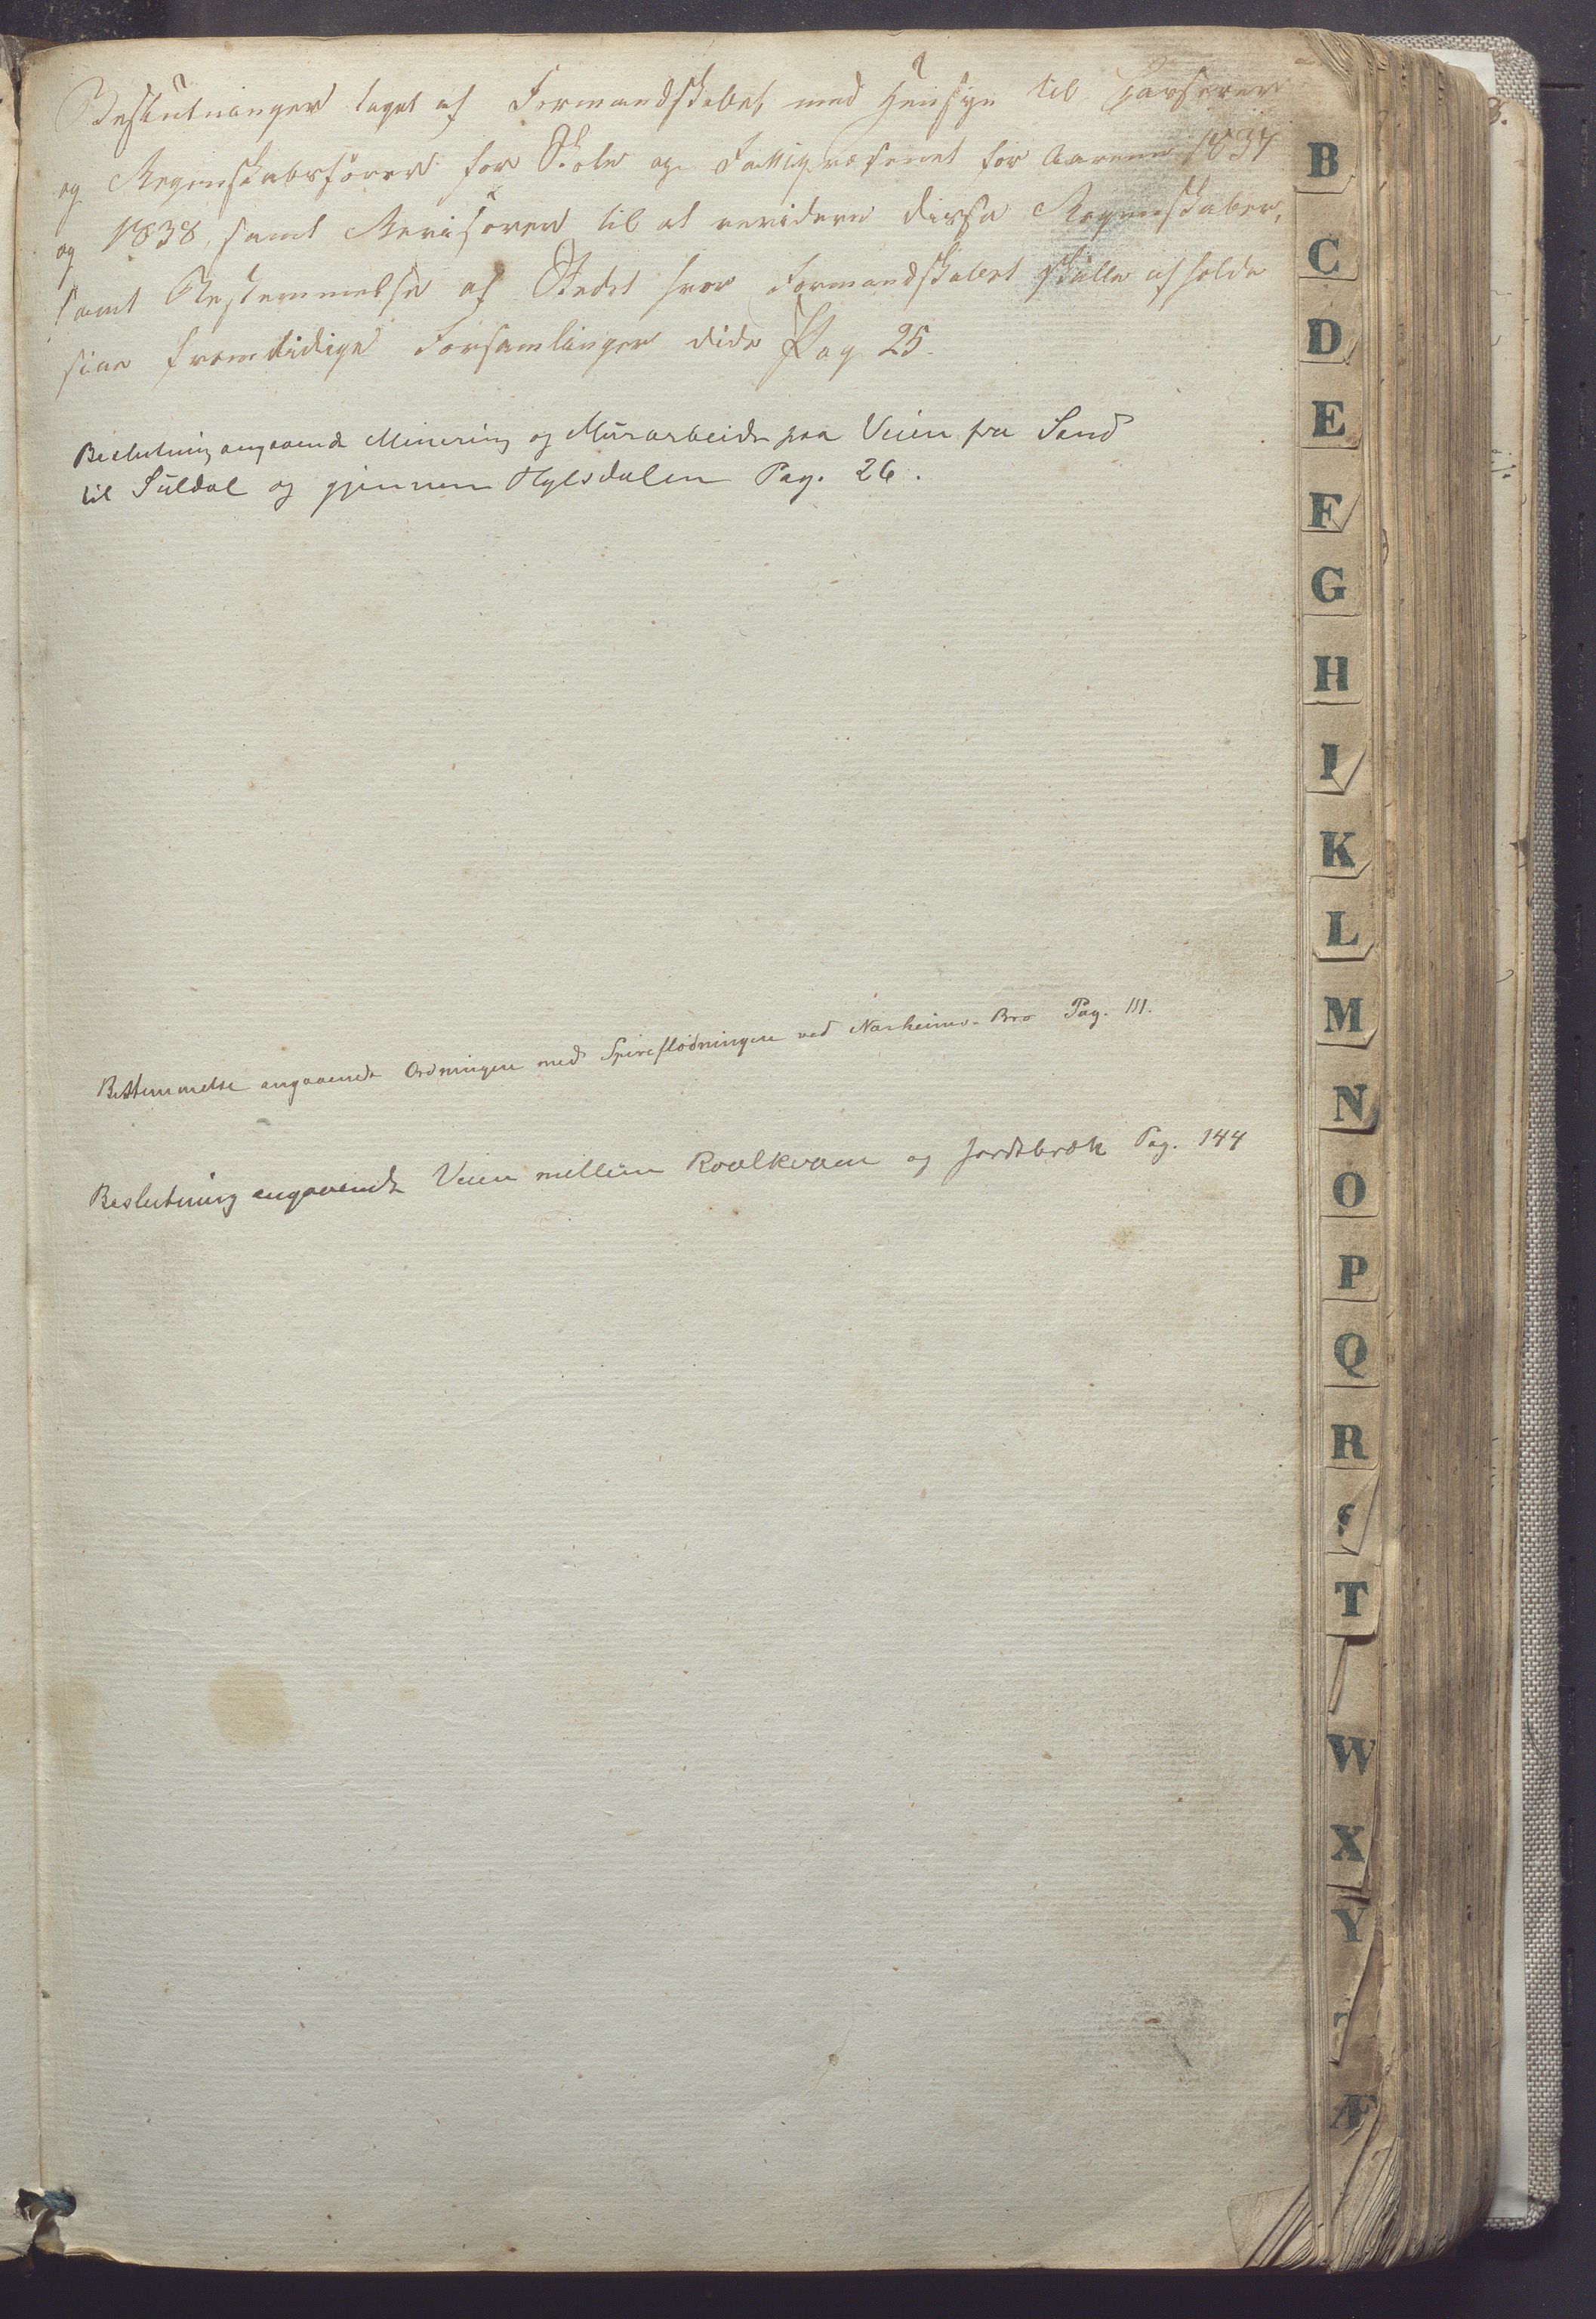 Beslutninger taget af Formandskabet, med Hensyn til Casserer
og Regnskabsfører for Skole og Fattigvæsenet for Aarene 1837
og 1838, samt Revisorer til at revidere disse Regnskaber,
samt Bestemmelse af Stedet hvor Formandskabet skulle afholde
sine fremtidige Forsamlinger vide Pag 25.
Beslutning angaaende Minering og Murarbeide paa Veien fra Sand
til Suldal og gjennem Hylsdalen Pag. 26.
Bestemmelse angaaende Ordningen med Spireflødningen ved Narheims-Bro Pag. 111.
Beslutning angaaende Veien mellem Roalkvam og Jordebræk Pag. 144
B
C
D
E
F
G
H
I
K
L
M
N
O
P
Q
R
S
T
W
X
Y
Æ